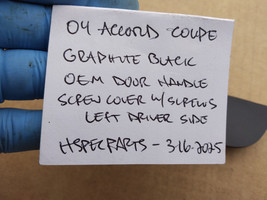 04 ACCORD COUPE
GRAPHITE BLACK
OEM DOOR HANDLE
SCREW COVER W/ SCREWS
LEFT DRIVER SIDE
HSPECPARTS - 3-16-2025